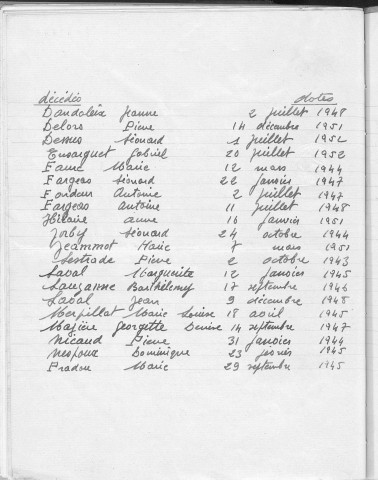 décédés dates
Dandaleix Jeanne 2 juillet 1948
Delors Pierre 14 décembre 1951
Demus Léonard 1 juillet 1952
Ensarguet Gabriel 20 juillet 1952
Faure Marie 12 mars 1944
Fargeas Léonard 22 janvier 1947
Fondeur Antoine 2 juillet 1947
Fargeas Antoine 11 juillet 1948
Hilaire Anne 16 janvier 1951
Joby Léonard 24 octobre 1944
Jeammot Marie 7 mars 1951
Lestrade Pierre 2 octobre 1943
Laval Marguerite 12 janvier 1945
Lauzanne Barthélémy 17 septembre 1946
Laval Jean 9 décembre 1948
Merpillat Marie Louise 18 avril 1945
Majère Georgette Denise 14 septembre 1947
Nicaud Pierre 31 janvier 1944
Nespoux Dominique 23 1945
Pradou Marie 29 septembre 1945